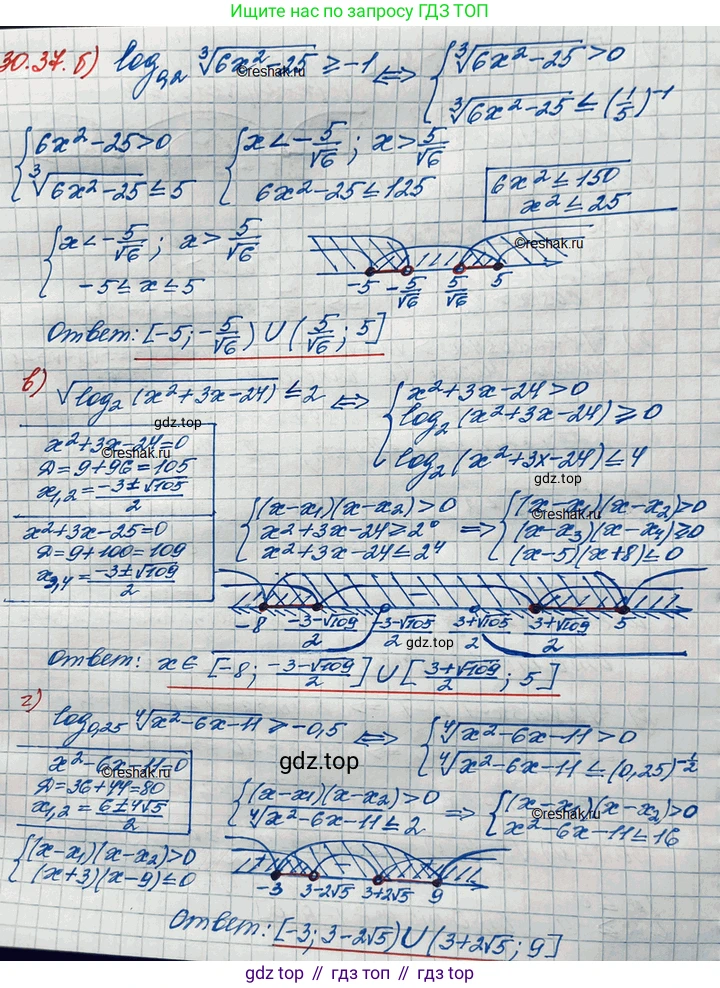 Ищите нас по запросу ГДЗ ТОП
30.37. б) log₀,₂ ∛(6x²-25) ≥ -1 ⇔ { ∛(6x²-25) > 0
∛(6x²-25) ≤ (1/5)⁻¹
©reshak.ru
{ 6x²-25>0 { x < -5/√6 ; x > 5/√6
∛(6x²-25) ≤ 5 6x²-25 ≤ 125
6x² ≤ 150
x² ≤ 25
{ x < -5/√6 ; x > 5/√6
-5 ≤ x ≤ 5
©reshak.ru
-5 -5/√6 5/√6 5
Ответ: [-5; -5/√6) ∪ (5/√6 ; 5]
в) √(log₂ (x²+3x-24)) ≤ 2 ⇔ { x²+3x-24 > 0
log₂ (x²+3x-24) ≥ 0
log₂ (x²+3x-24) ≤ 4
gdz.top
gdz.top
x²+3x-24=0
©reshak.ru
Д=9+96=105
x₁,₂ = (-3±√105)/2
x²+3x-25=0
Д=9+100=109
x₃,₄ = (-3±√109)/2
{ (x-x₁)(x-x₂) > 0 ⇒ { (x-x₁)(x-x₂) > 0
x²+3x-24 ≥ 2⁰ (x-x₃)(x-x₄) ≥ 0
x²+3x-24 ≤ 2⁴ (x-5)(x+8) ≤ 0
-
-8 (-3-√109)/2 (-3-√105)/2 (3+√105)/2 (3+√109)/2 5
gdz.top
Ответ: x ∈ [-8; (-3-√109)/2] ∪ [(3+√109)/2 ; 5]
г) log₀,₂₅ ∜(x²-6x-11) ≥ -0,5 ⇔ { ∜(x²-6x-11) > 0
∜(x²-6x-11) ≤ (0,25)^(-1/2)
gdz.top
x²-6x-11=0
©reshak.ru
Д=36+44=80
x₁,₂ = (6±4√5)/2
{ (x-x₁)(x-x₂) > 0 ⇒ { (x-x₁)(x-x₂) > 0
∜(x²-6x-11) ≤ 2 x²-6x-11 ≤ 16
©reshak.ru
{ (x-x₁)(x-x₂) > 0
(x+3)(x-9) ≤ 0
+ -
-3 3-2√5 3+2√5 9
Ответ: [-3; 3-2√5) ∪ (3+2√5 ; 9]
gdz top // гдз топ // gdz.top